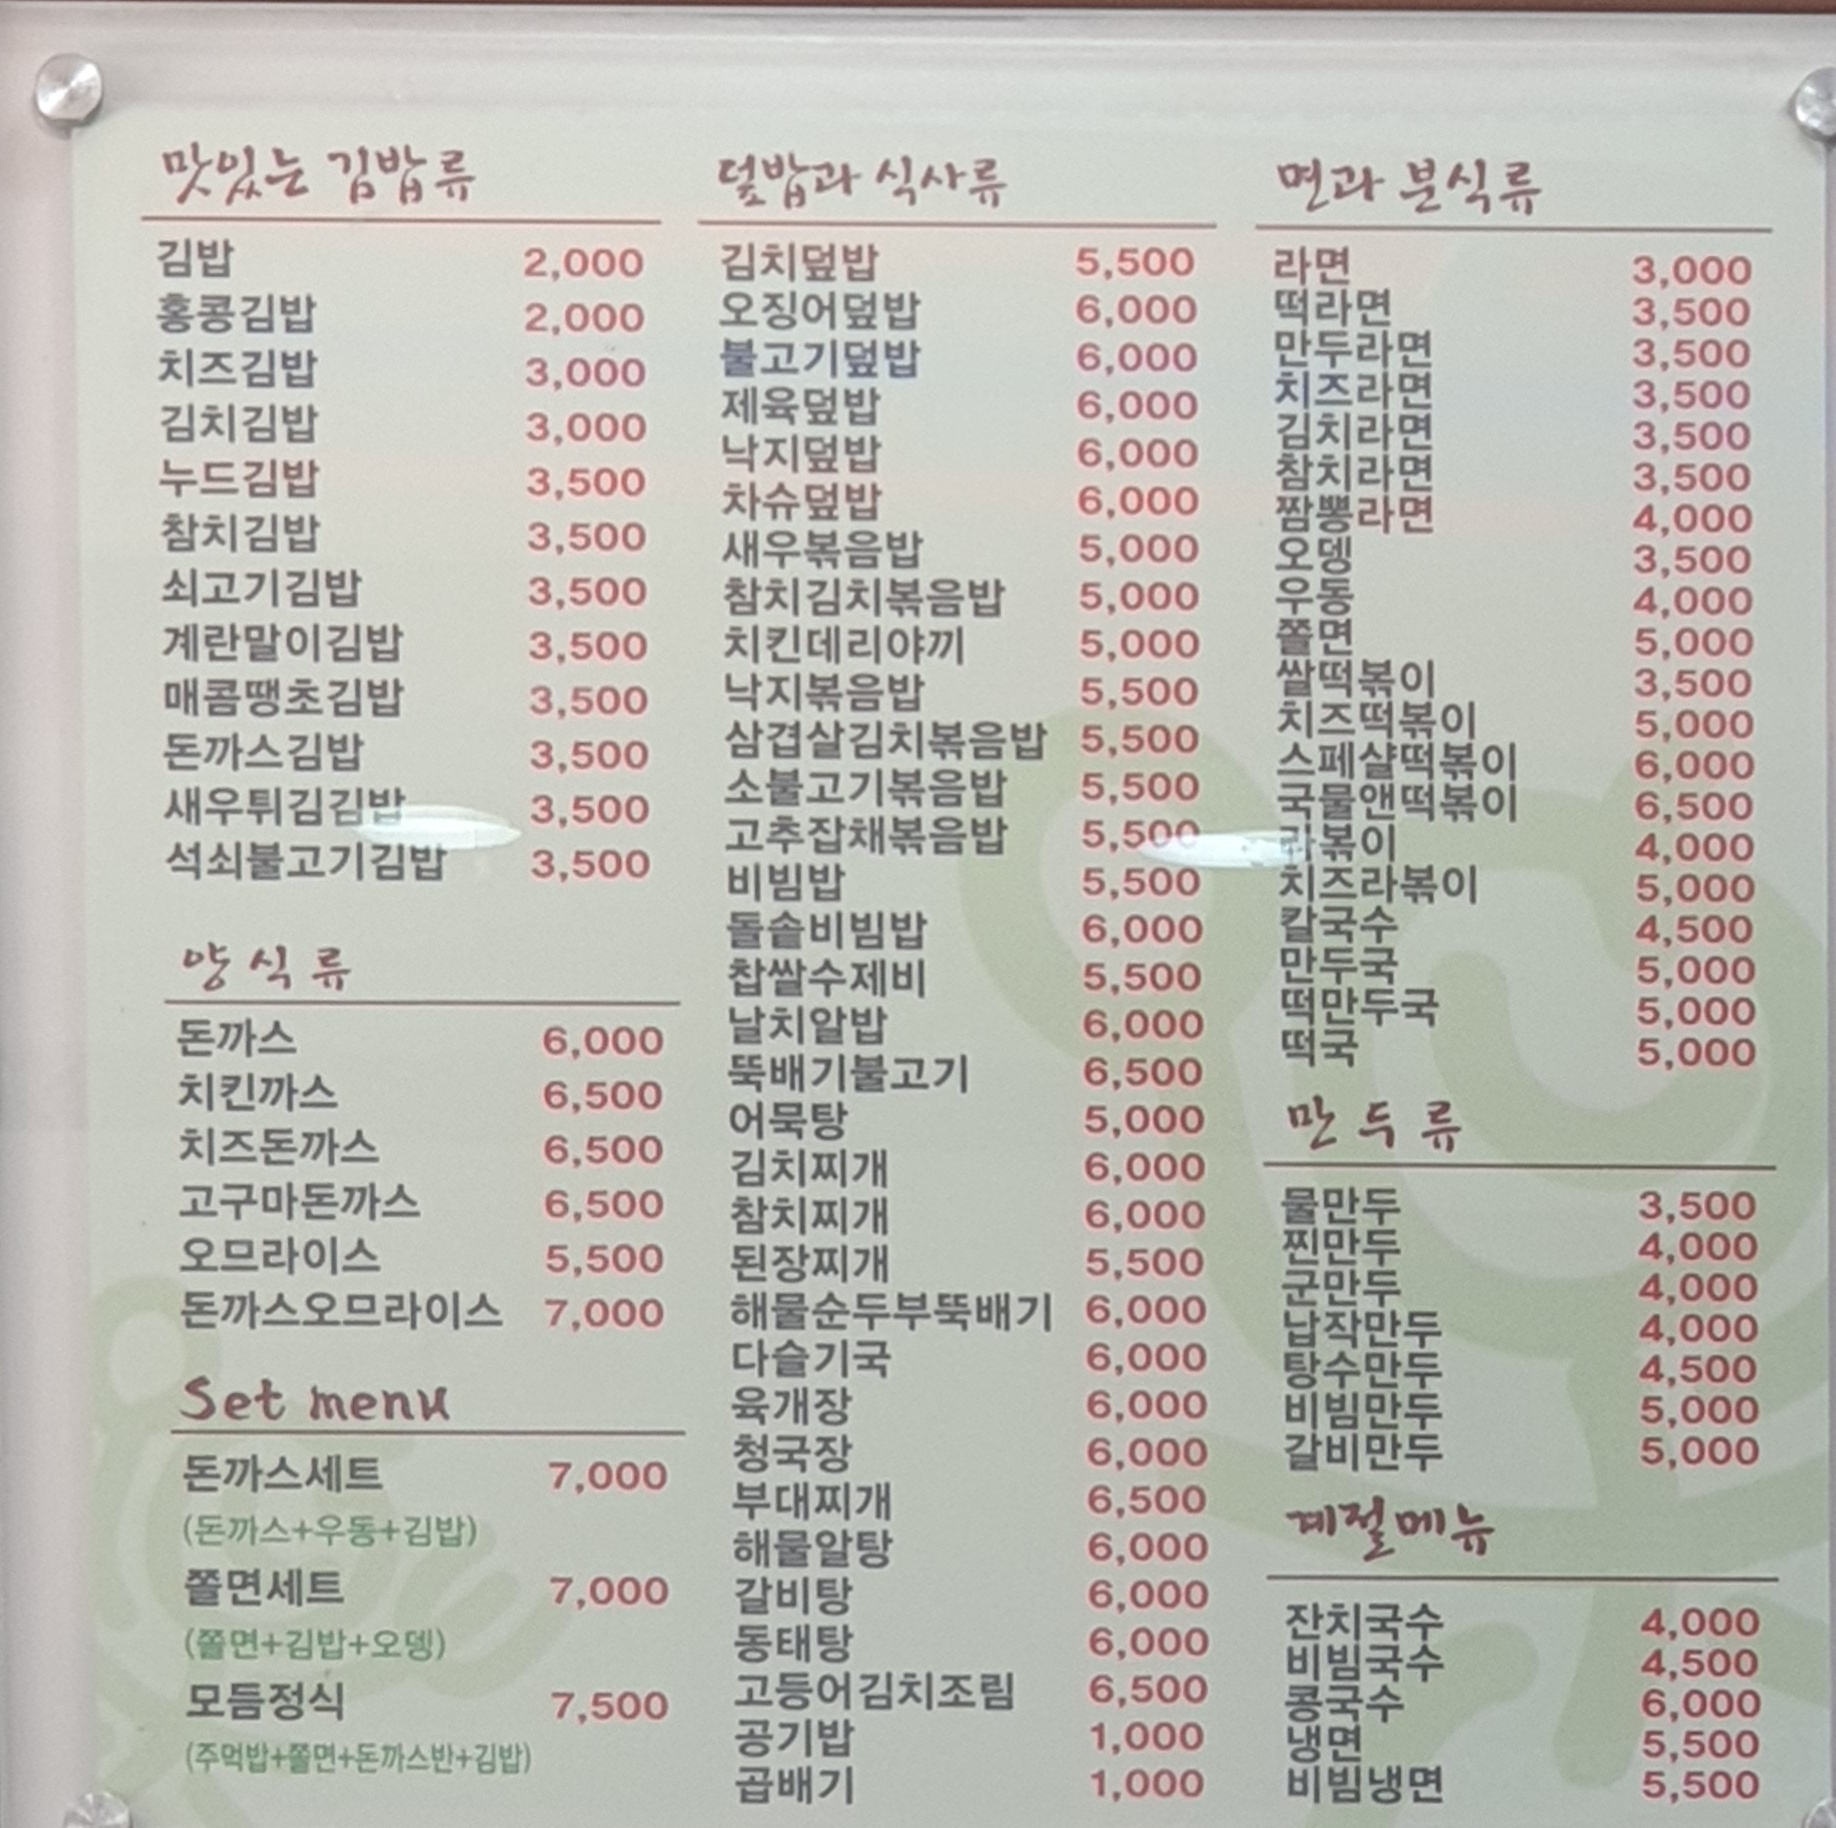 맛있는 김밥류
김밥 2,000
홍콩김밥 2,000
치즈김밥 3,000
김치김밥 3,000
누드김밥 3,500
참치김밥 3,500
쇠고기김밥 3,500
계란말이김밥 3,500
매콤땡초김밥 3,500
돈까스김밥 3,500
새우튀김김밥 3,500
석쇠불고기김밥 3,500
양식류
돈까스 6,000
치킨까스 6,500
치즈돈까스 6,500
고구마돈까스 6,500
오므라이스 5,500
돈까스오므라이스 7,000
Set menu
돈까스세트 7,000
(돈까스+우동+김밥)
쫄면세트 7,000
(쫄면+김밥+오뎅)
모듬정식 7,500
(주먹밥+쫄면+돈까스반+김밥)
덮밥과 식사류
김치덮밥 5,500
오징어덮밥 6,000
불고기덮밥 6,000
제육덮밥 6,000
낙지덮밥 6,000
차슈덮밥 6,000
새우볶음밥 5,000
참치김치볶음밥 5,000
치킨데리야끼 5,000
낙지볶음밥 5,500
삼겹살김치볶음밥 5,500
소불고기볶음밥 5,500
고추잡채볶음밥 5,500
비빔밥 5,500
돌솥비빔밥 6,000
찹쌀수제비 5,500
날치알밥 6,000
뚝배기불고기 6,500
어묵탕 5,000
김치찌개 6,000
참치찌개 6,000
된장찌개 5,500
해물순두부뚝배기 6,000
다슬기국 6,000
육개장 6,000
청국장 6,000
부대찌개 6,500
해물알탕 6,000
갈비탕 6,000
동태탕 6,000
고등어김치조림 6,500
공기밥 1,000
곱배기 1,000
면과 분식류
라면 3,000
떡라면 3,500
만두라면 3,500
치즈라면 3,500
김치라면 3,500
참치라면 3,500
짬뽕라면 4,000
오뎅 3,500
우동 4,000
쫄면 5,000
쌀떡볶이 3,500
치즈떡볶이 5,000
스페샬떡볶이 6,000
국물앤떡볶이 6,500
라볶이 4,000
치즈라볶이 5,000
칼국수 4,500
만두국 5,000
떡만두국 5,000
떡국 5,000
만두류
물만두 3,500
찐만두 4,000
군만두 4,000
납작만두 4,000
탕수만두 4,500
비빔만두 5,000
갈비만두 5,000
계절메뉴
잔치국수 4,000
비빔국수 4,500
콩국수 6,000
냉면 5,500
비빔냉면 5,500